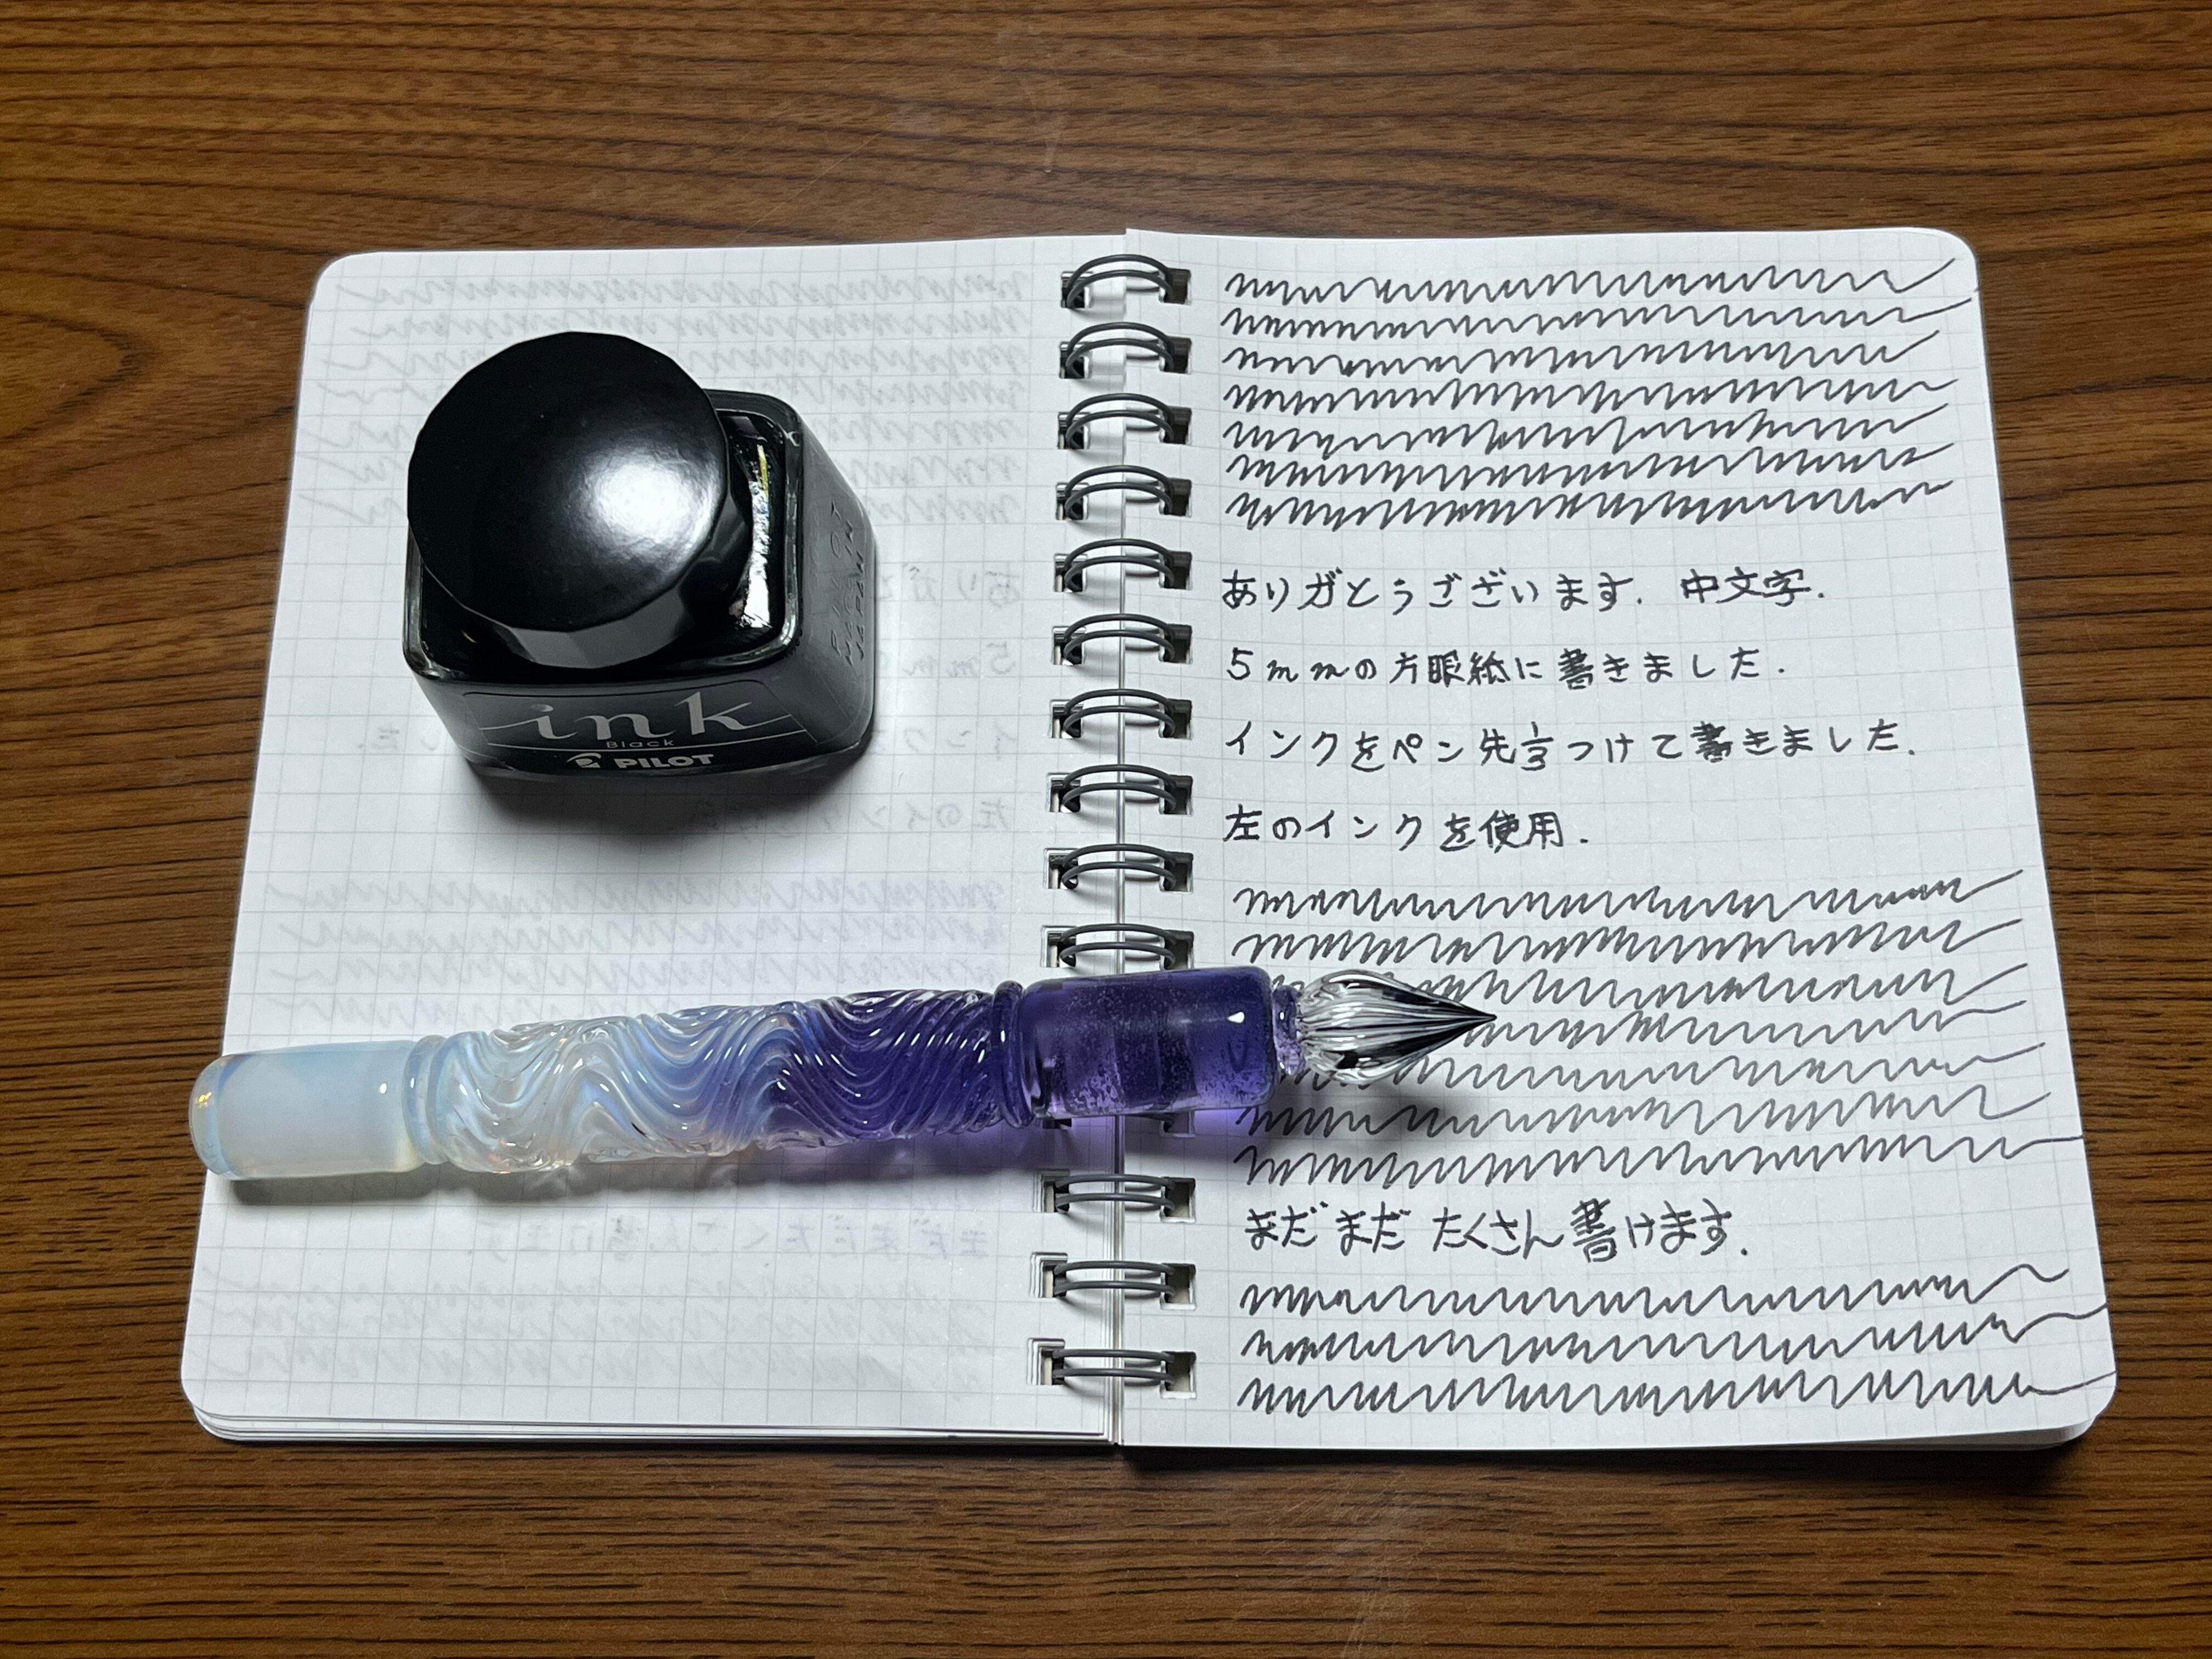 ink
Black
PILOT
PILOT
MADE IN
JAPAN
ありガとうございます. 中文字.
5mmの方眼紙に書きました.
インクをペン先につけて書きました.
左のインクを使用.
まだまだたくさん書けます.